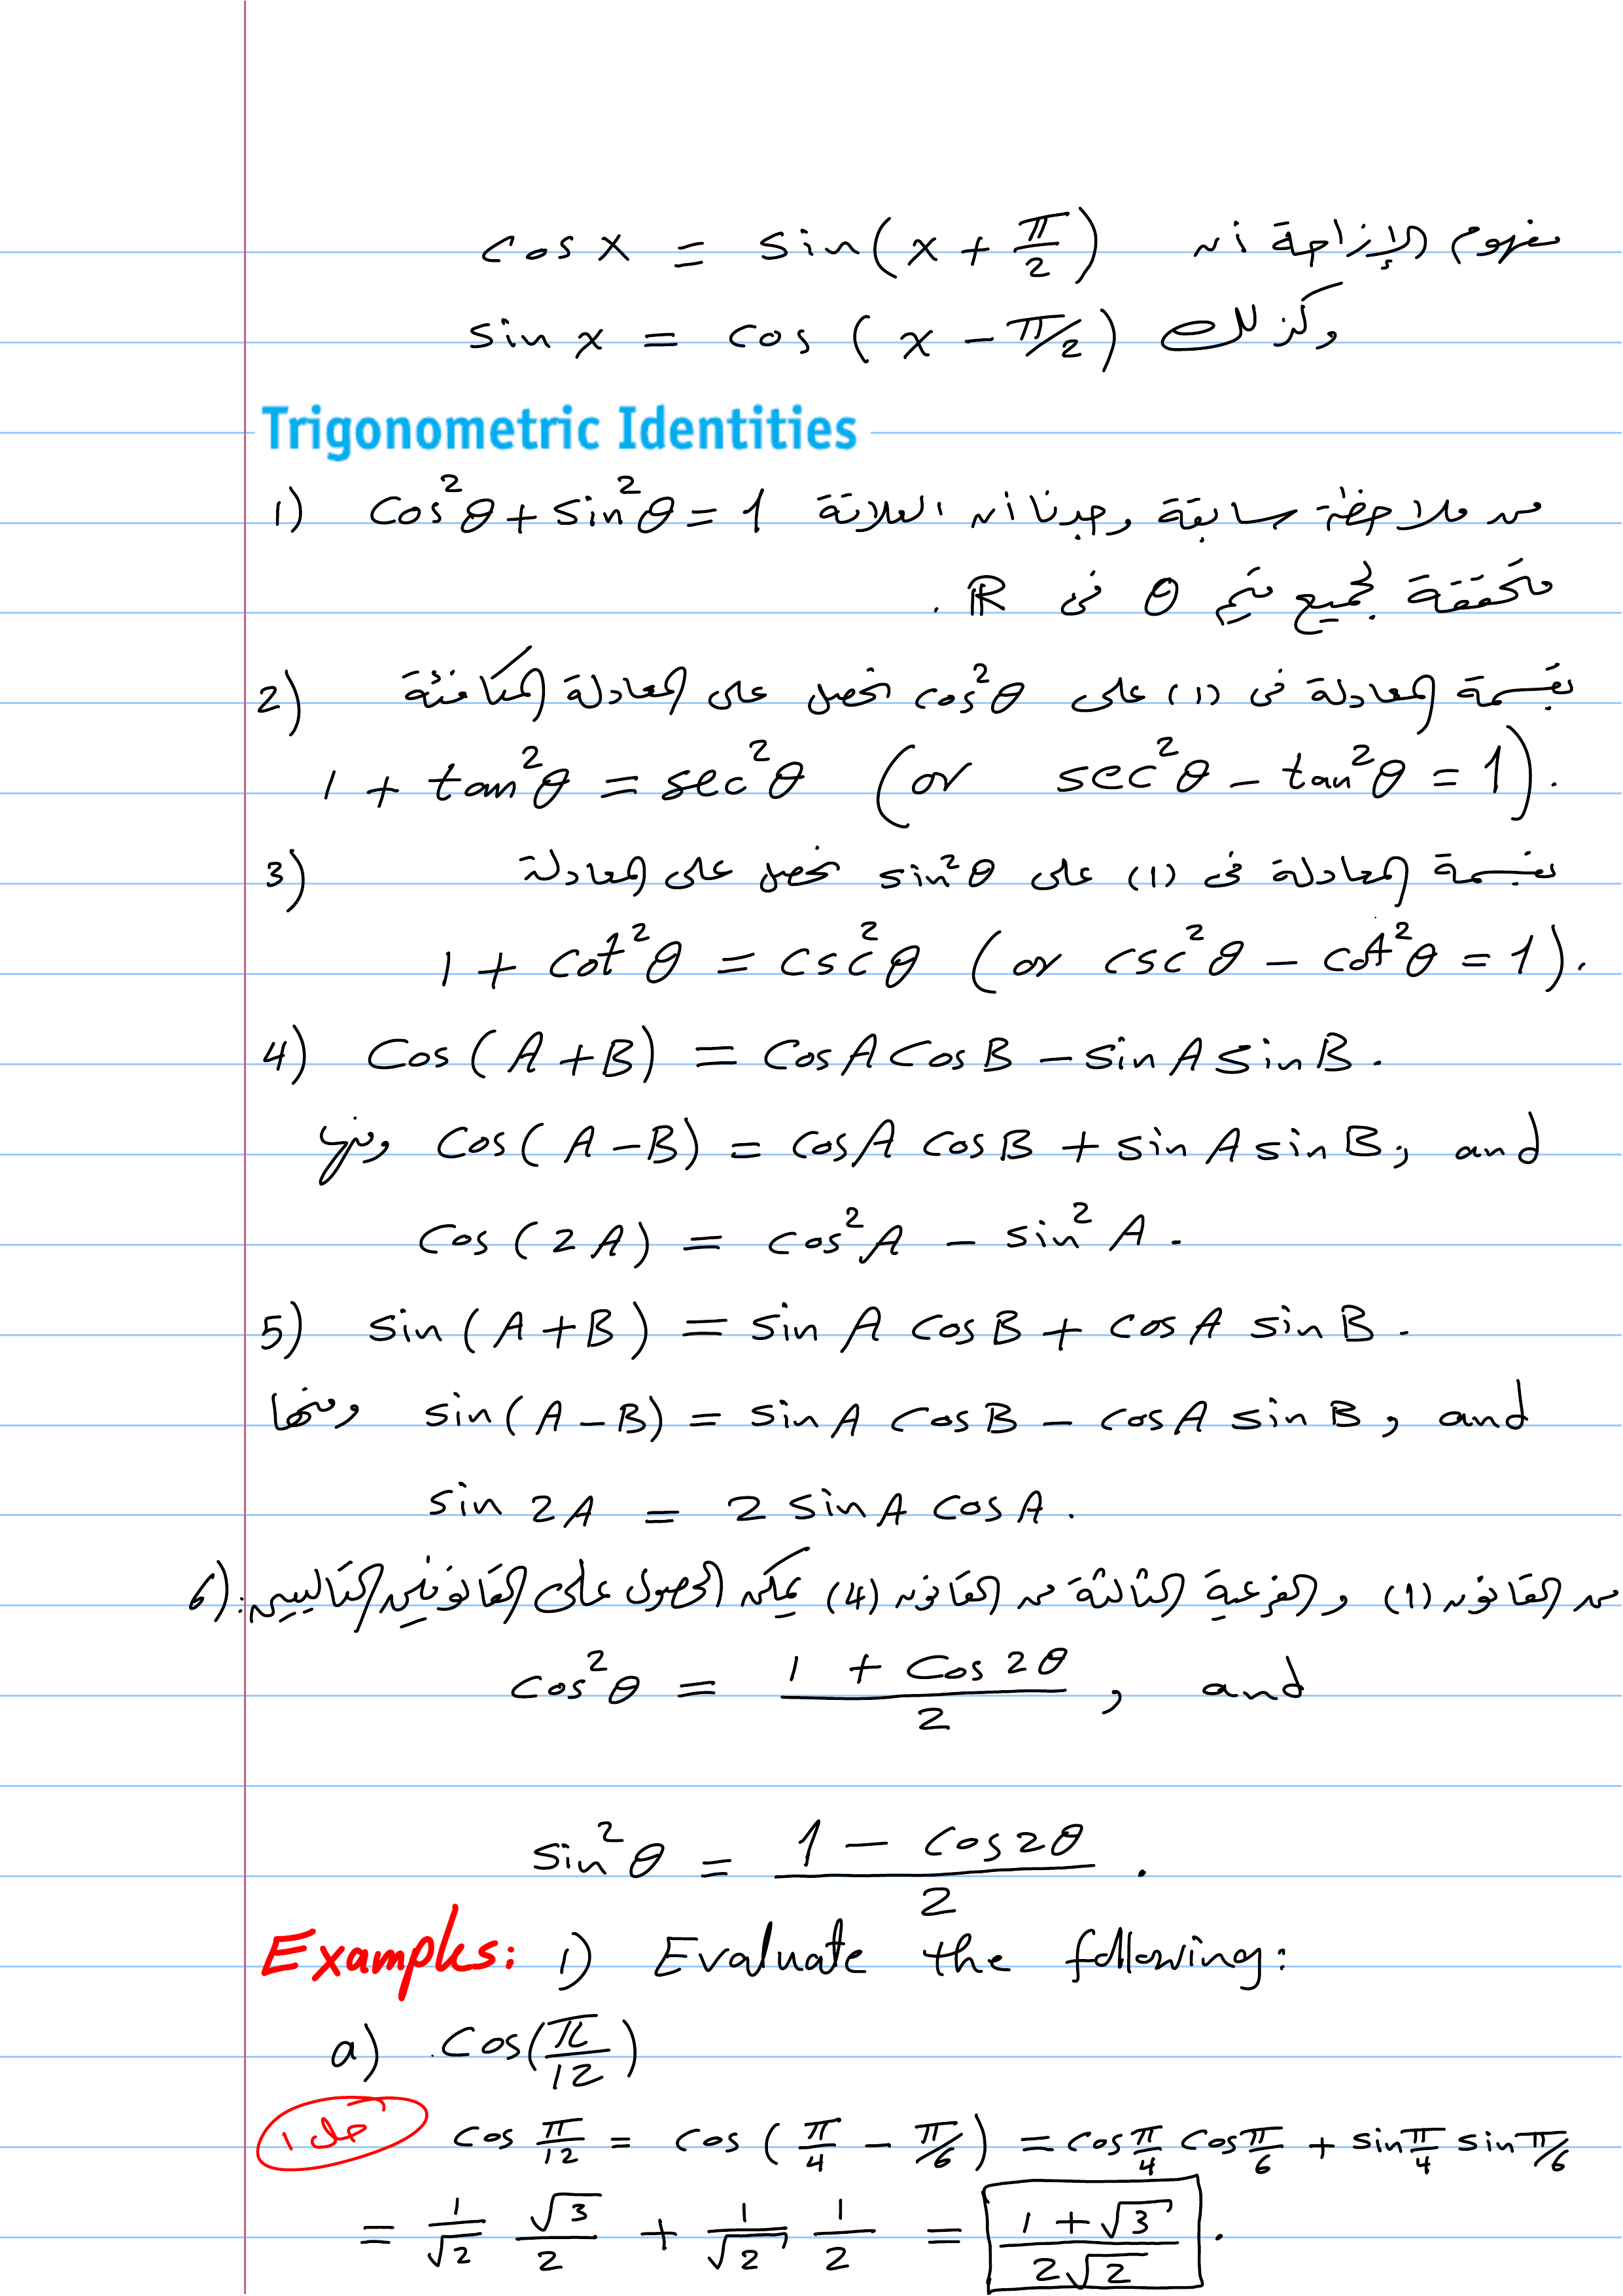 مفهوم الإزاحة أن cos x = sin(x + π/2)
وكذلك sin x = cos (x - π/2)
Trigonometric Identities
1) cos²θ + sin²θ = 1 من ملاحظة سابقة وجدنا أن العلاقة
محققة لجميع قيم θ في ℝ.
2) بقسمة المعادلة في (1) على cos²θ نحصل على المعادلة المكافئة
1 + tan²θ = sec²θ (or sec²θ - tan²θ = 1).
3) بقسمة المعادلة في (1) على sin²θ نحصل على المعادلة
1 + cot²θ = csc²θ (or csc²θ - cot²θ = 1).
4) Cos(A+B) = cosA cosB - sinA sinB.
ومنها Cos(A-B) = cosA cosB + sinA sinB, and
cos(2A) = cos²A - sin²A.
5) sin(A+B) = sinA cosB + cosA sinB.
ومنها sin(A-B) = sinA cosB - cosA sinB, and
sin 2A = 2 sinA cosA.
6) من القانون (1) والفرعية الثالثة من القانون (4) يمكن الحصول على القانونين التاليين:
cos²θ = (1 + cos2θ)/2, and
sin²θ = (1 - cos2θ)/2.
Examples: 1) Evaluate the following:
a) Cos(π/12)
حل 1 cos π/12 = cos (π/4 - π/6) = cos π/4 cos π/6 + sin π/4 sin π/6
= 1/√2 √3/2 + 1/√2 1/2 = (1+√3)/(2√2).